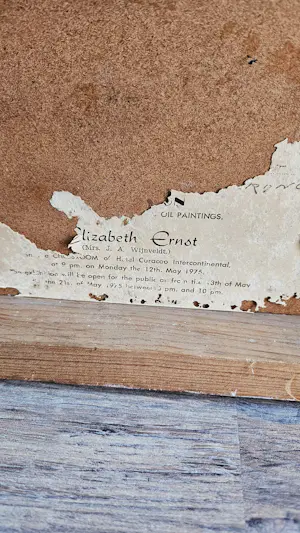 OIL PAINTINGS.
Elizabeth Ernst
(Mrs. J. A. Wijnveldt.)
ROOM of Hotel Curacao Intercontinental,
at 9 pm. on Monday the 12th. May 1975.
will be open for the public as from the 13th of May
the 21st of May 1975 between 5 pm. and 10 pm.